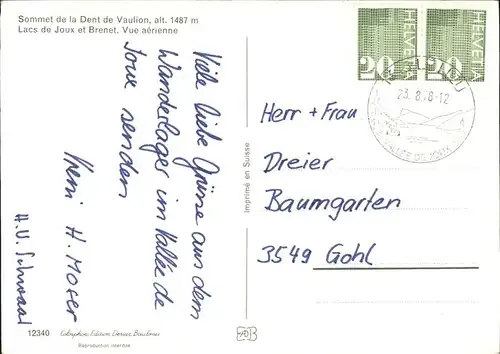 Sommet de la Dent de Vaulion, alt. 1487 m
Lacs de Joux et Brenet. Vue aérienne
Viele liebe Grüsse aus dem
Wanderlager im Vallée de
Joux senden
H. Moser
H.U. Schwaal
Imprimé en Suisse
HELVETIA
20
HELVETIA
20
23.8.78-12
VALLEE DE JOUX
Herr + Frau
Dreier
Baumgarten
3549 Gohl
12340
Reproduction interdite